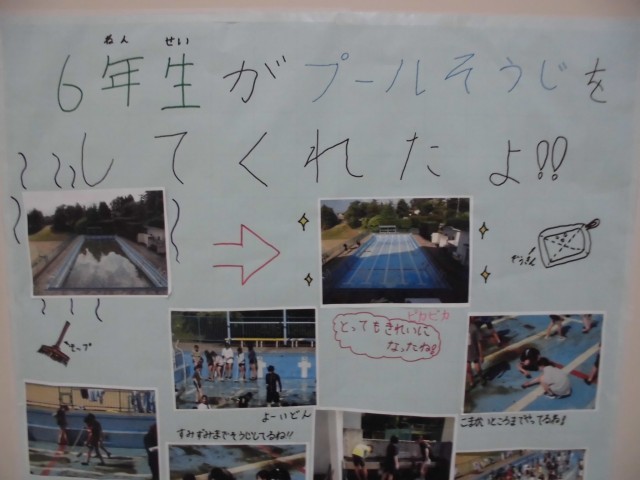 ねん せい
6年生がプールそうじを
してくれたよ!!
ぞうきん
ピカピカ
とってもきれいに
なったね!
モップ
よーいどん
すみずみまでそうじしてるね!!
こまかいところまでやってるね!